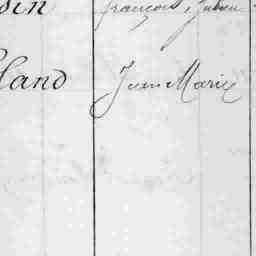 sin françois, Julien
land Jean Marie